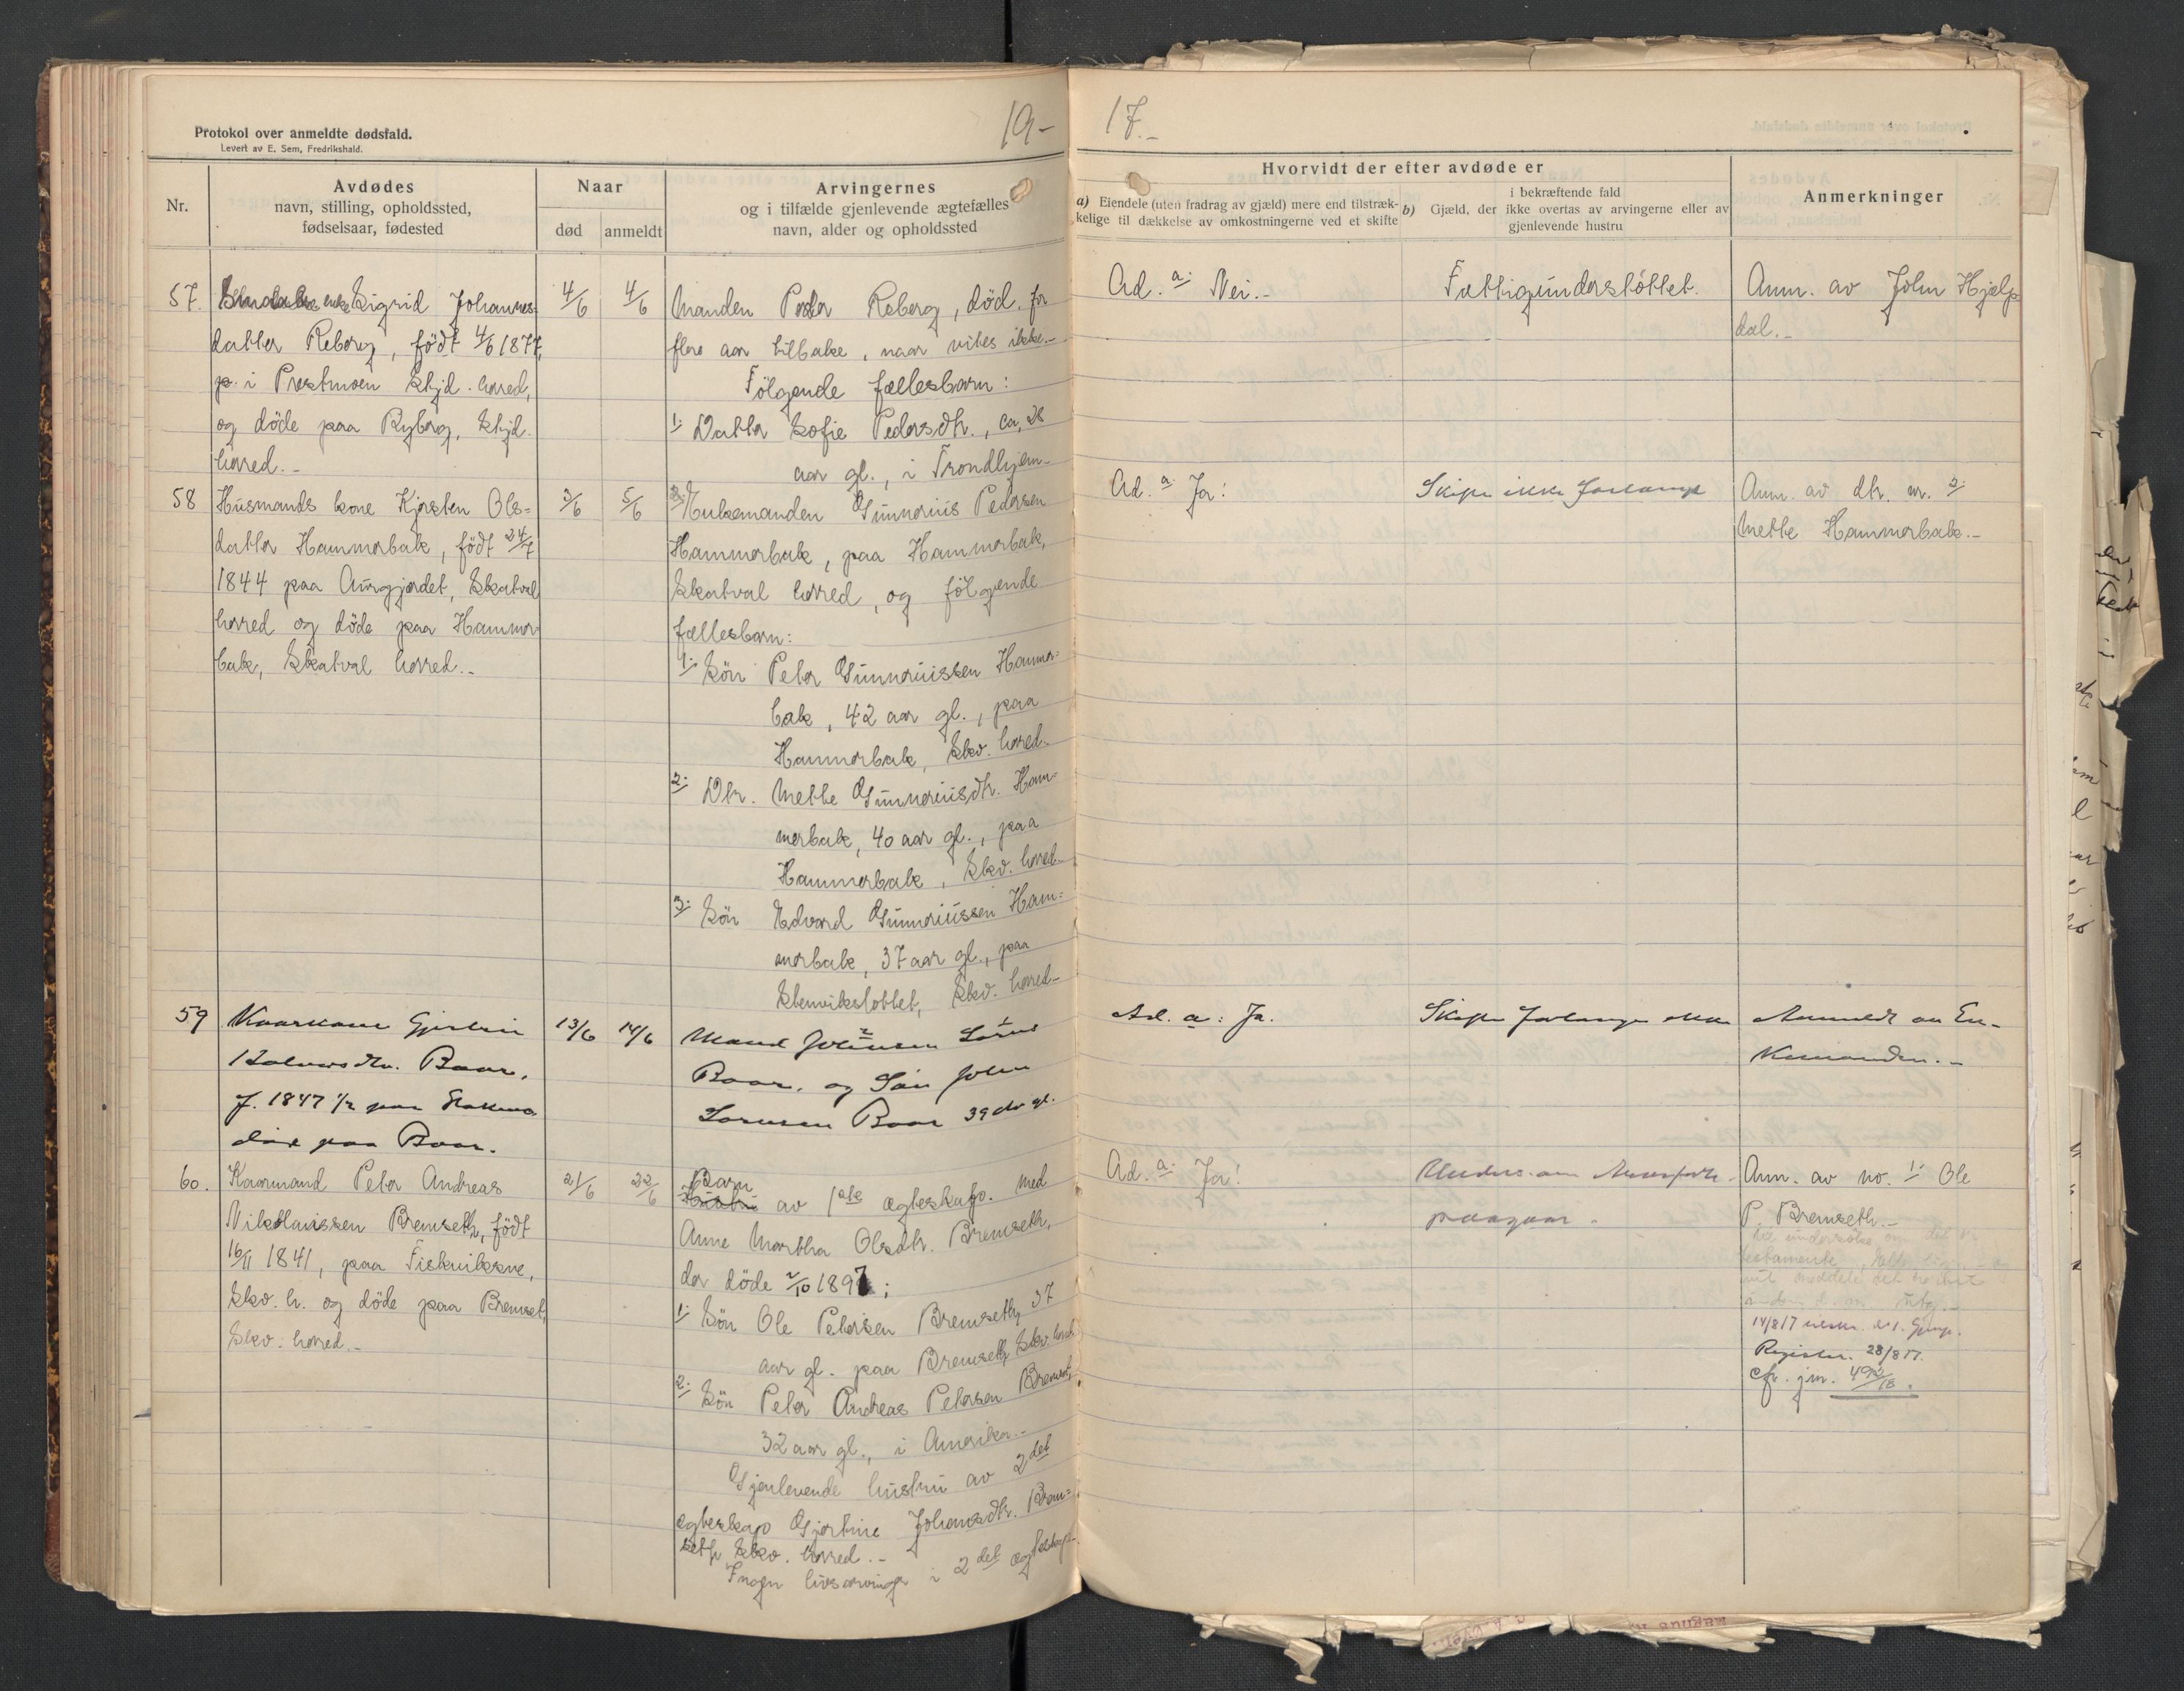 Protokol over anmeldte dødsfald.
Levert av E. Sem, Fredrikshald.
19-
Nr.
Avdødes
navn, stilling, opholdssted,
fødselsaar, fødested
Naar
død
anmeldt
Arvingernes
og i tilfælde gjenlevende ægtefælles
navn, alder og opholdssted
57.
Sigrid Johannes-
datter Reberg, födt 4/6 1877,
p. i Prestmoen Stjd. herred,
og döde paa Ryberg, Stjd.
herred.-
4/6
4/6
Manden Peder Reberg, död for
flere aar tilbake, naar vites ikke.-
Fölgende fællesbarn:
1: Datter Sofie Pedersdtr., ca. 28
aar gl., i Trondhjem-
58
Husmands kone Kjersten Ols=
datter Hammerbak, födt 24/7
1844 paa Aungjerdet, Skatval
herred og döde paa Hammer-
bak, Skatval herred.-
3/6
5/6
Enkemanden Gunnerius Pedersen
Hammerbak, paa Hammerbak,
Skatval herred, og fölgende
fællesbarn:
1: Sön Peter Gunneriussen Hammer=
bak, 42 aar gl., paa
Hammerbak, Skv. herred.
2: Dtr. Mette Gunneriusdtr. Ham-
merbak, 40 aar gl., paa
Hammerbak, Skv. herred-
3: Sön Edvard Gunneriussen Ham=
merbak, 37 aar gl., paa
Stenvikslottet, Skv. herred-
59
Kaarkone Gjertin
Halvorsdtr. Baar,
f. 1847 1/2 paa
död paa Baar.
13/6
14/6
Mand Johansen Sörens
Baar, og Sön John
Sorensen Baar 39 aar gl.
60.
Kaarmand Peter Andreas
Nikolaissen Bremseth, födt
16/11 1841, paa Fiskvikene,
Skv. h. og döde paa Bremset,
Skv. herred.-
21/6
22/6
Barn
av 1ste ægteskap. med
Anne Martha Olsdtr. Bremseth,
der döde 2/10 1897;
1: Sön Ole Petersen Bremseth, 37
aar gl. paa Bremseth Skv. herred
2: Sön Peter Andreas Petersen Bremset,
32 aar gl., i Amerika.-
Gjenlevende hustru av 2det
ægteskap Gjertine Johansdtr. Brem=
seth Skv. herred.-
Ingen livsarvinger i 2det ægteskap-
17.-
Hvorvidt der efter avdøde er
a) Eiendele (uten fradrag av gjæld) mere end tilstræk-
kelige til dækkelse av omkostningerne ved et skifte
b) Gjæld, der
i bekræftende fald
ikke overtas av arvingerne eller av
gjenlevende hustru
Anmerkninger
Ad. a: Nei.-
Fattigunderstöttet.
Anm. av John Hjelp
dal.-
Ad. a: Ja!
Skifte ikke forlangt
Anm. av dtr. nr. 2:
Mette Hammerbak.-
Ad. a: Ja.
Skifte forlanges ikke
Anmeldt av En-
kemanden.-
Ad. a: Ja!
Unders. om
paagaar.
Anm. av no. 1: Ole
P. Bremseth.-
vil undersöke om det
testamente
vil meddele det
14/817
Register. 28/817.
cfr. jnr. 492/18.